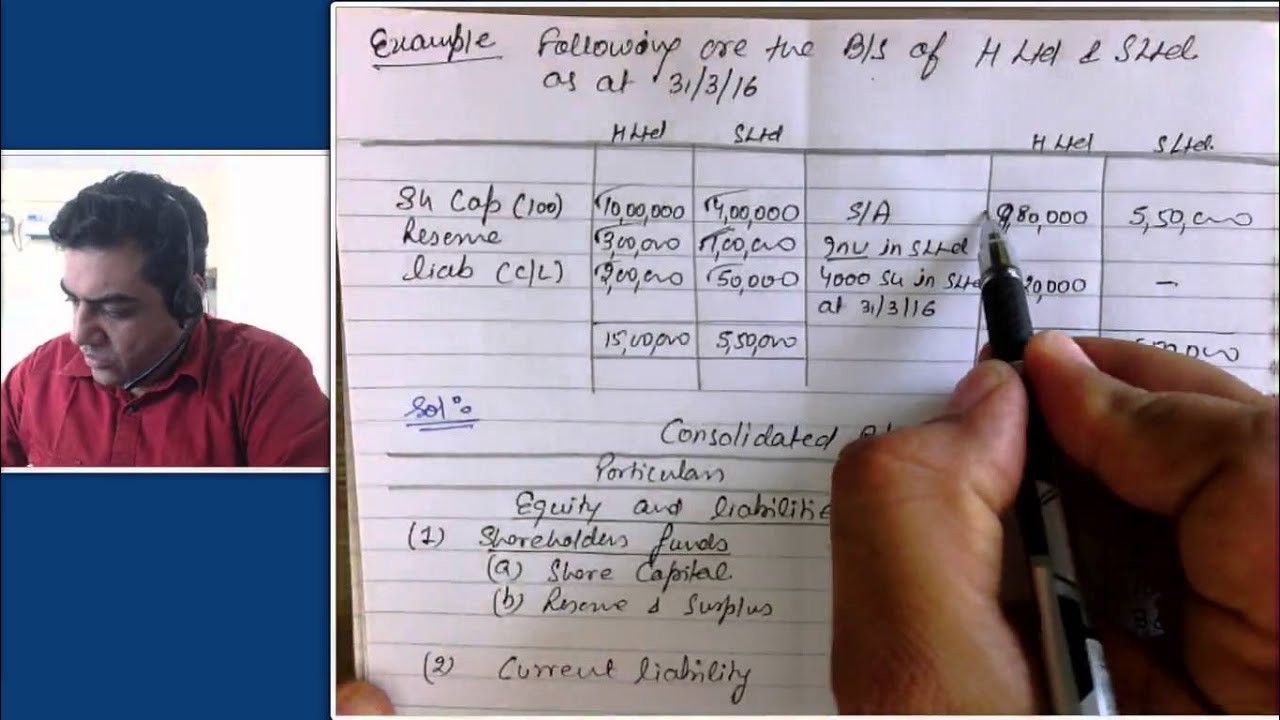 Example Following are the B/S of H Ltd & S Ltd
as at 31/3/16
H Ltd S Ltd H Ltd S Ltd.
Sh Cap (100) 10,00,000 4,00,000 S/A 9,80,000 5,50,000
Reserve 3,00,000 1,00,000 Inv in S Ltd
liab (C/L) 2,00,000 50,000 4000 Sh in S Ltd 20,000 —
at 31/3/16
15,00,000 5,50,000
Sol:
Consolidated
Particulars
Equity and liabilitie
(1) Shareholders funds
(a) Share Capital
(b) Reserve & Surplus
(2) Current liability